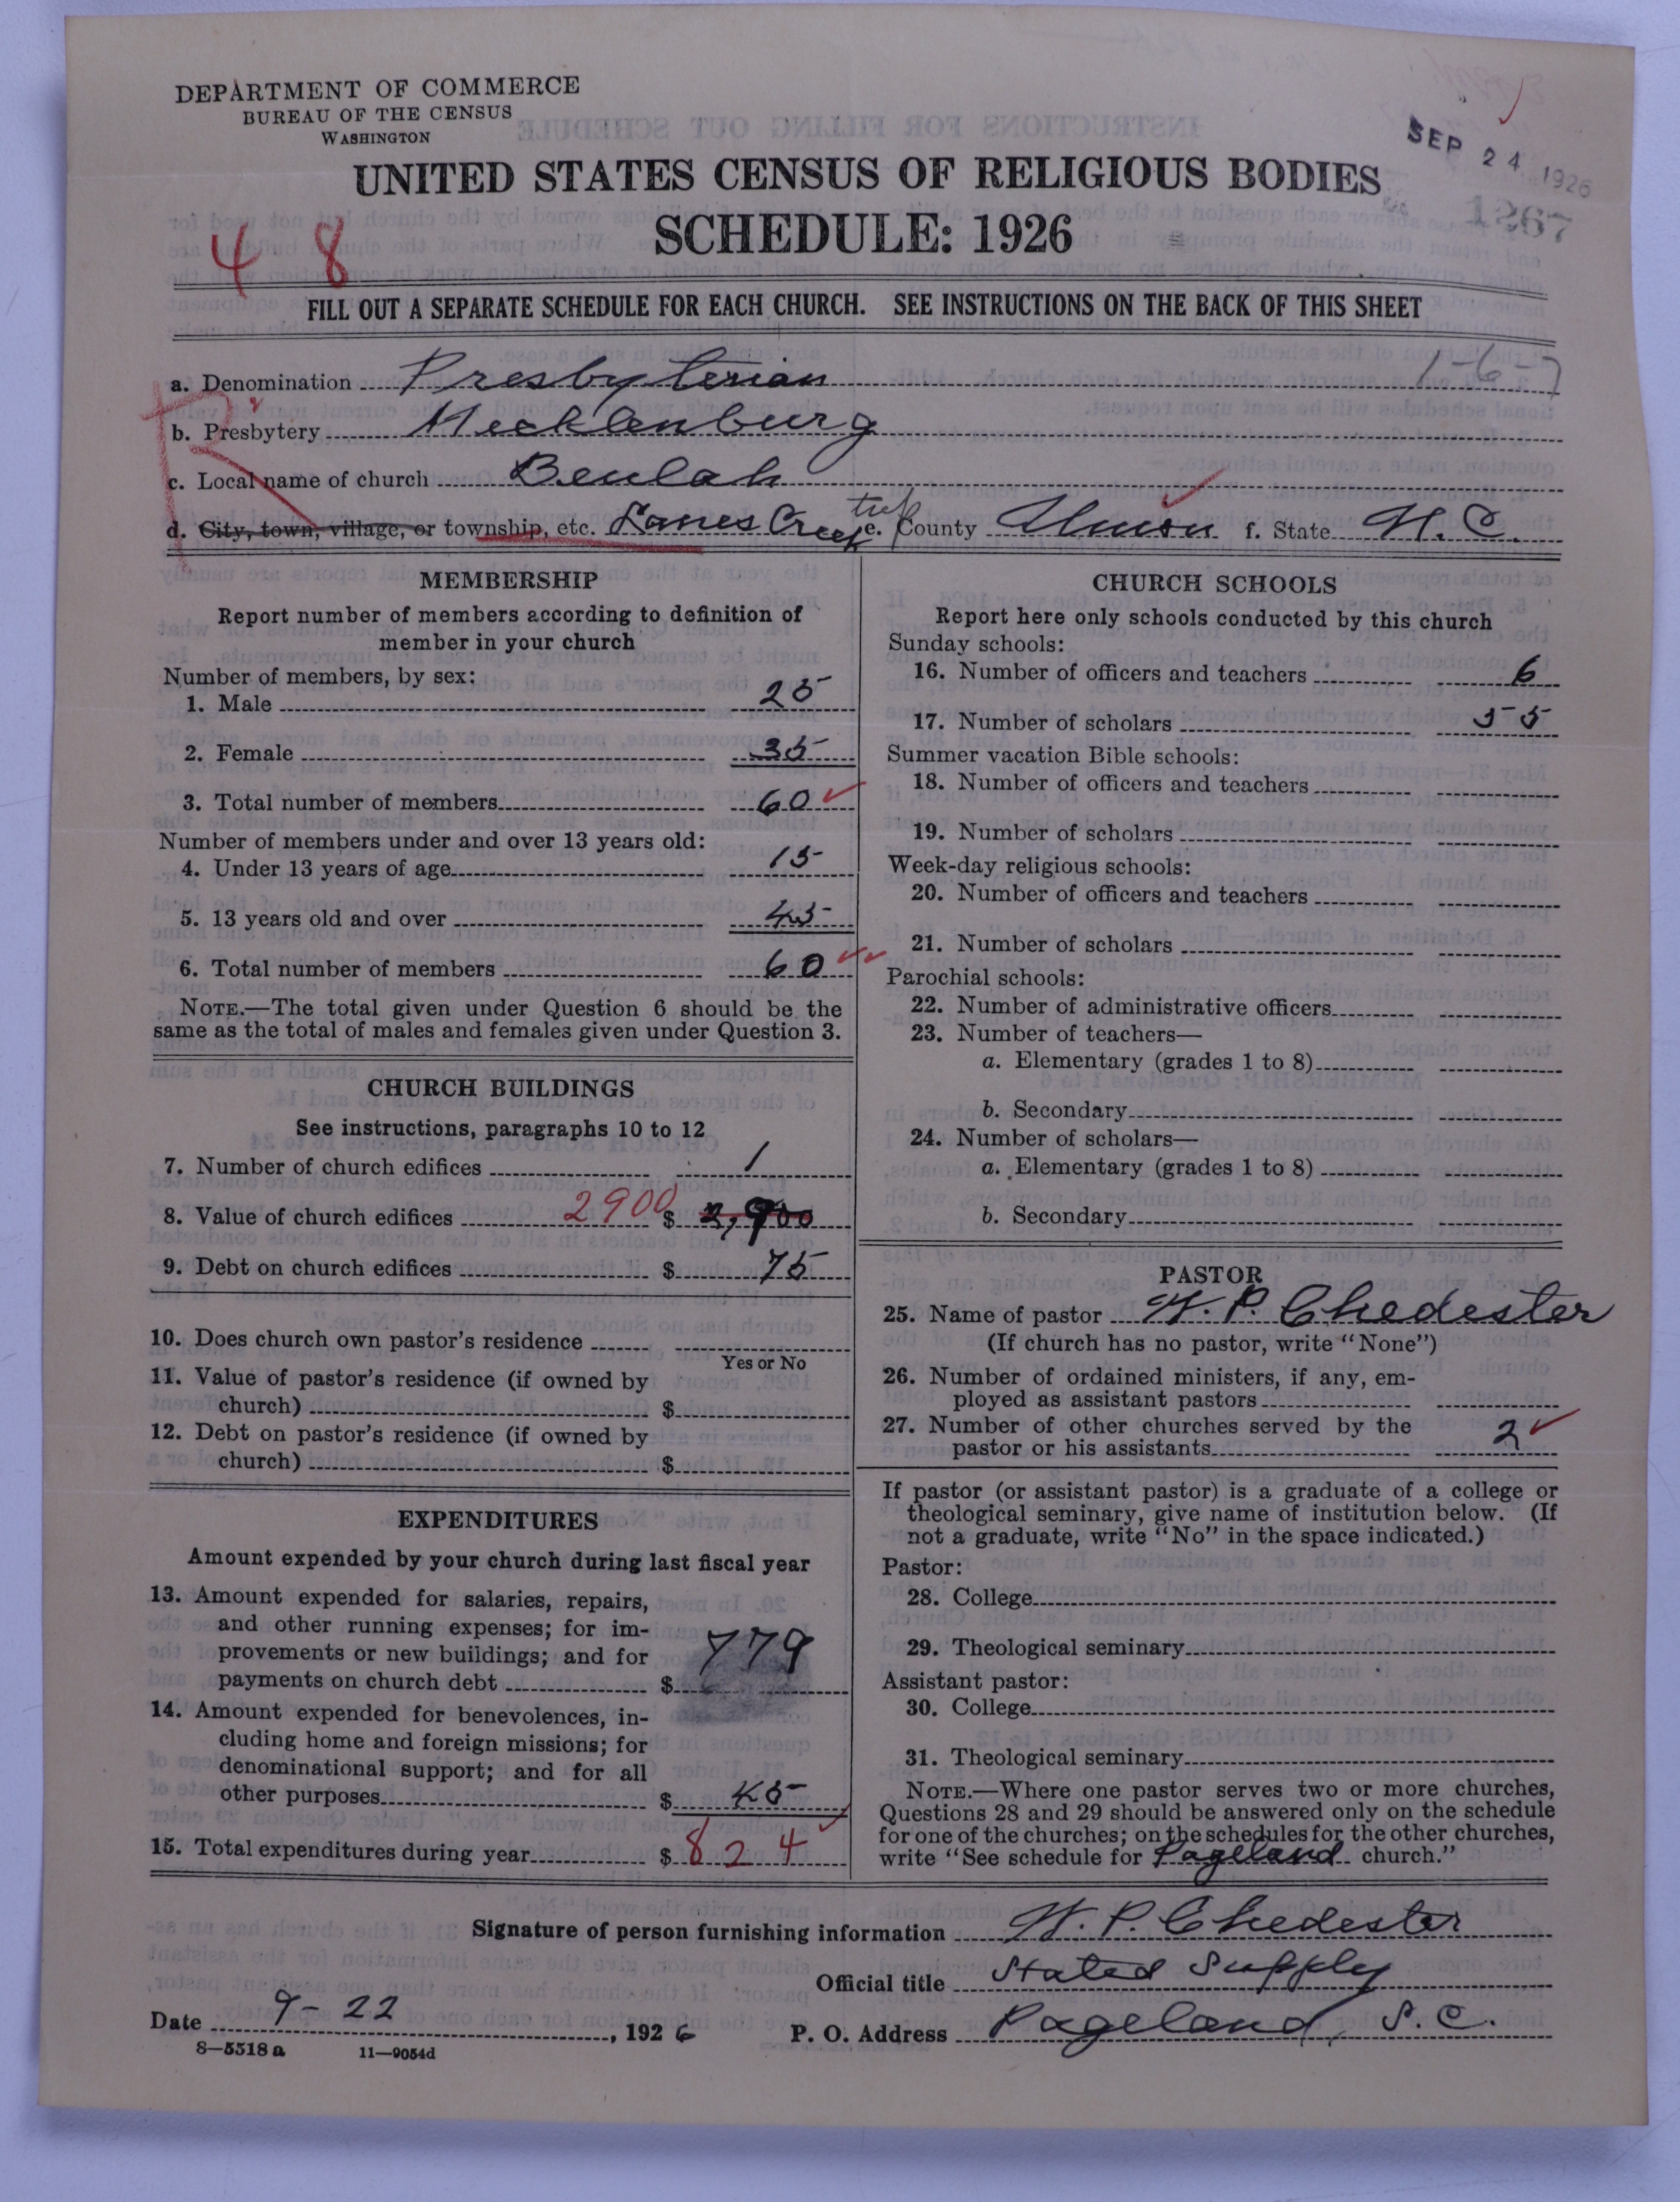 DEPARTMENT OF COMMERCE
BUREAU OF THE CENSUS
WASHINGTON
SEP 24 1926
UNITED STATES CENSUS OF RELIGIOUS BODIES
SCHEDULE: 1926
1267
4 8
FILL OUT A SEPARATE SCHEDULE FOR EACH CHURCH. SEE INSTRUCTIONS ON THE BACK OF THIS SHEET
a. Denomination Presbyterian 1-6-7
b. Presbytery Mecklenburg
c. Local name of church Beulah
d. City, town, village, or township, etc. Lanes Creek twp e. County Union f. State N. C.
MEMBERSHIP
Report number of members according to definition of
member in your church
Number of members, by sex:
1. Male 25
2. Female 35
3. Total number of members 60
Number of members under and over 13 years old:
4. Under 13 years of age 15
5. 13 years old and over 45
6. Total number of members 60
NOTE.—The total given under Question 6 should be the
same as the total of males and females given under Question 3.
CHURCH BUILDINGS
See instructions, paragraphs 10 to 12
7. Number of church edifices 1
8. Value of church edifices 2900 $ 2,900
9. Debt on church edifices $ 75
10. Does church own pastor's residence
Yes or No
11. Value of pastor's residence (if owned by
church) $
12. Debt on pastor's residence (if owned by
church) $
EXPENDITURES
Amount expended by your church during last fiscal year
13. Amount expended for salaries, repairs,
and other running expenses; for im-
provements or new buildings; and for
payments on church debt $ 779
14. Amount expended for benevolences, in-
cluding home and foreign missions; for
denominational support; and for all
other purposes $ 45
15. Total expenditures during year $ 824
CHURCH SCHOOLS
Report here only schools conducted by this church
Sunday schools:
16. Number of officers and teachers 6
17. Number of scholars 55
Summer vacation Bible schools:
18. Number of officers and teachers
19. Number of scholars
Week-day religious schools:
20. Number of officers and teachers
21. Number of scholars
Parochial schools:
22. Number of administrative officers
23. Number of teachers—
a. Elementary (grades 1 to 8)
b. Secondary
24. Number of scholars—
a. Elementary (grades 1 to 8)
b. Secondary
PASTOR
25. Name of pastor W. P. Chedester
(If church has no pastor, write "None")
26. Number of ordained ministers, if any, em-
ployed as assistant pastors
27. Number of other churches served by the
pastor or his assistants 2
If pastor (or assistant pastor) is a graduate of a college or
theological seminary, give name of institution below. (If
not a graduate, write "No" in the space indicated.)
Pastor:
28. College
29. Theological seminary
Assistant pastor:
30. College
31. Theological seminary
NOTE.—Where one pastor serves two or more churches,
Questions 28 and 29 should be answered only on the schedule
for one of the churches; on the schedules for the other churches,
write "See schedule for Pageland church."
Signature of person furnishing information W. P. Chedester
Official title Stated Supply
Date 9-22, 1926 P. O. Address Pageland, S. C.
8—5518 a 11—9054d